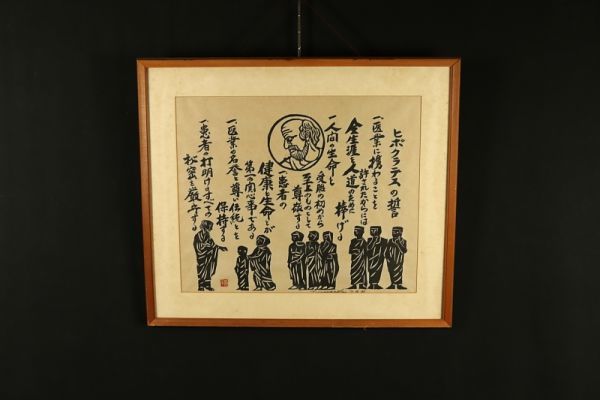 ヒポクラテスの誓
一、医業に携わることを
許されたからには
全生涯を人道のために
捧げる。
一、人間の生命を
受胎の初めから
至上のものとして
尊敬する。
一、患者の
健康と生命とが
第一の関心事である。
一、医業の名誉と尊い伝統とを
保持する。
一、患者の打明けるすべての
秘密を厳守する。